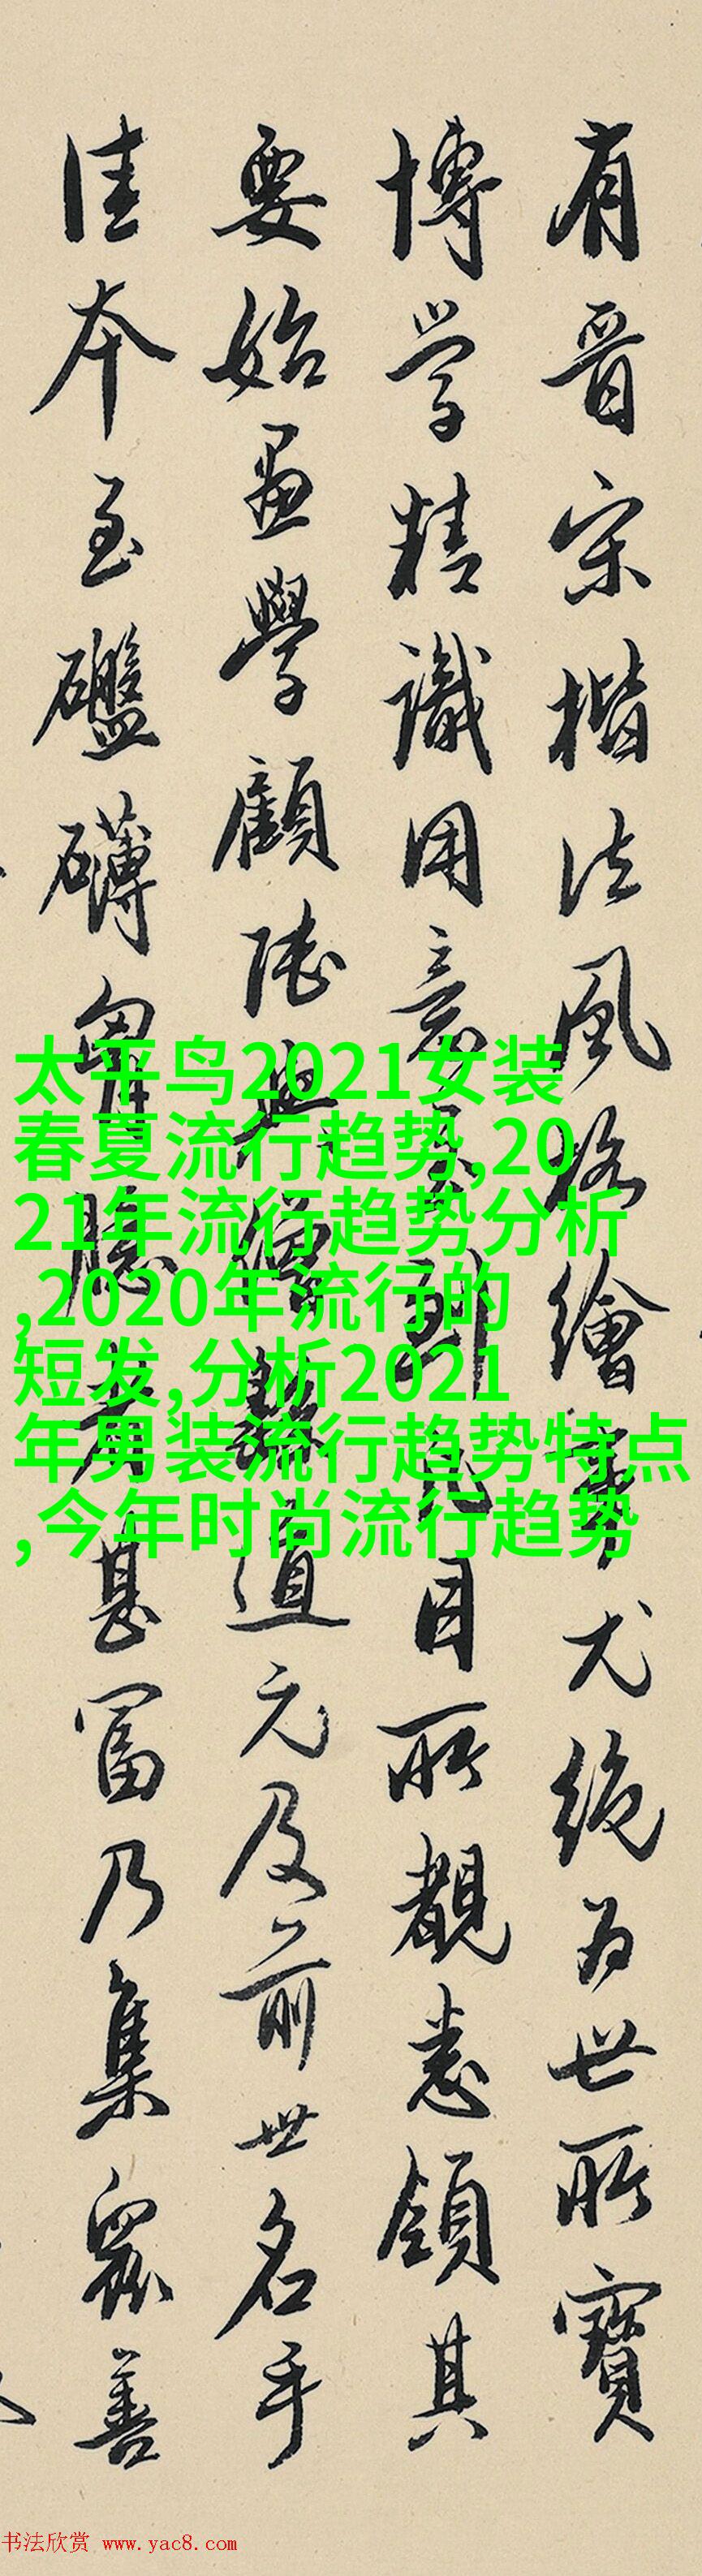 有晋宋楷法风格繪事尤绝为世所寶
博学精識用意至到凡目所覩悉領其
要始畫學顧陸與僧繇道元及前世名手
佳本至礠礴胷臆者甚富乃集眾善
太平鸟2021女装
春夏流行趋势,20
21年流行趋势分析
,2020年流行的
短发,分析2021
年男装流行趋势特点
,今年时尚流行趋势
书法欣赏 www.yac8.com